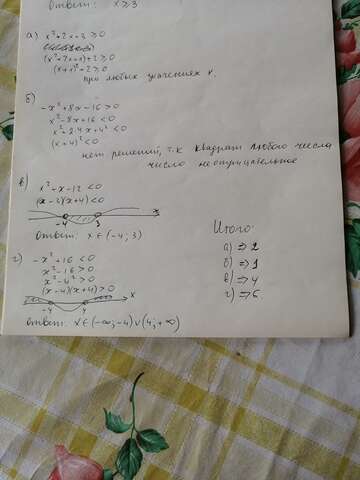 Ответ: x ≥ 3
а) x²+2x+3 ≥ 0
(x²+2x+1)+2 ≥ 0
(x+1)²+2 ≥ 0
при любых значениях x.
б)
-x²+8x-16 > 0
x²-8x+16 < 0
x²+2·4x+4² < 0
(x+4)² < 0
нет решений, т.к квадрат любого числа
число неотрицательное
в)
x²-x-12 < 0
(x-3)(x+4) < 0
-4 3 x
Ответ: x ∈ (-4; 3)
г)
-x²+16 < 0
x²-16 > 0
x²-4² > 0
(x-4)(x+4) > 0
-4 4 x
Ответ: x ∈ (-∞; -4) ∪ (4; +∞)
Итого:
а) => 2
б) => 1
в) => 4
г) => 6